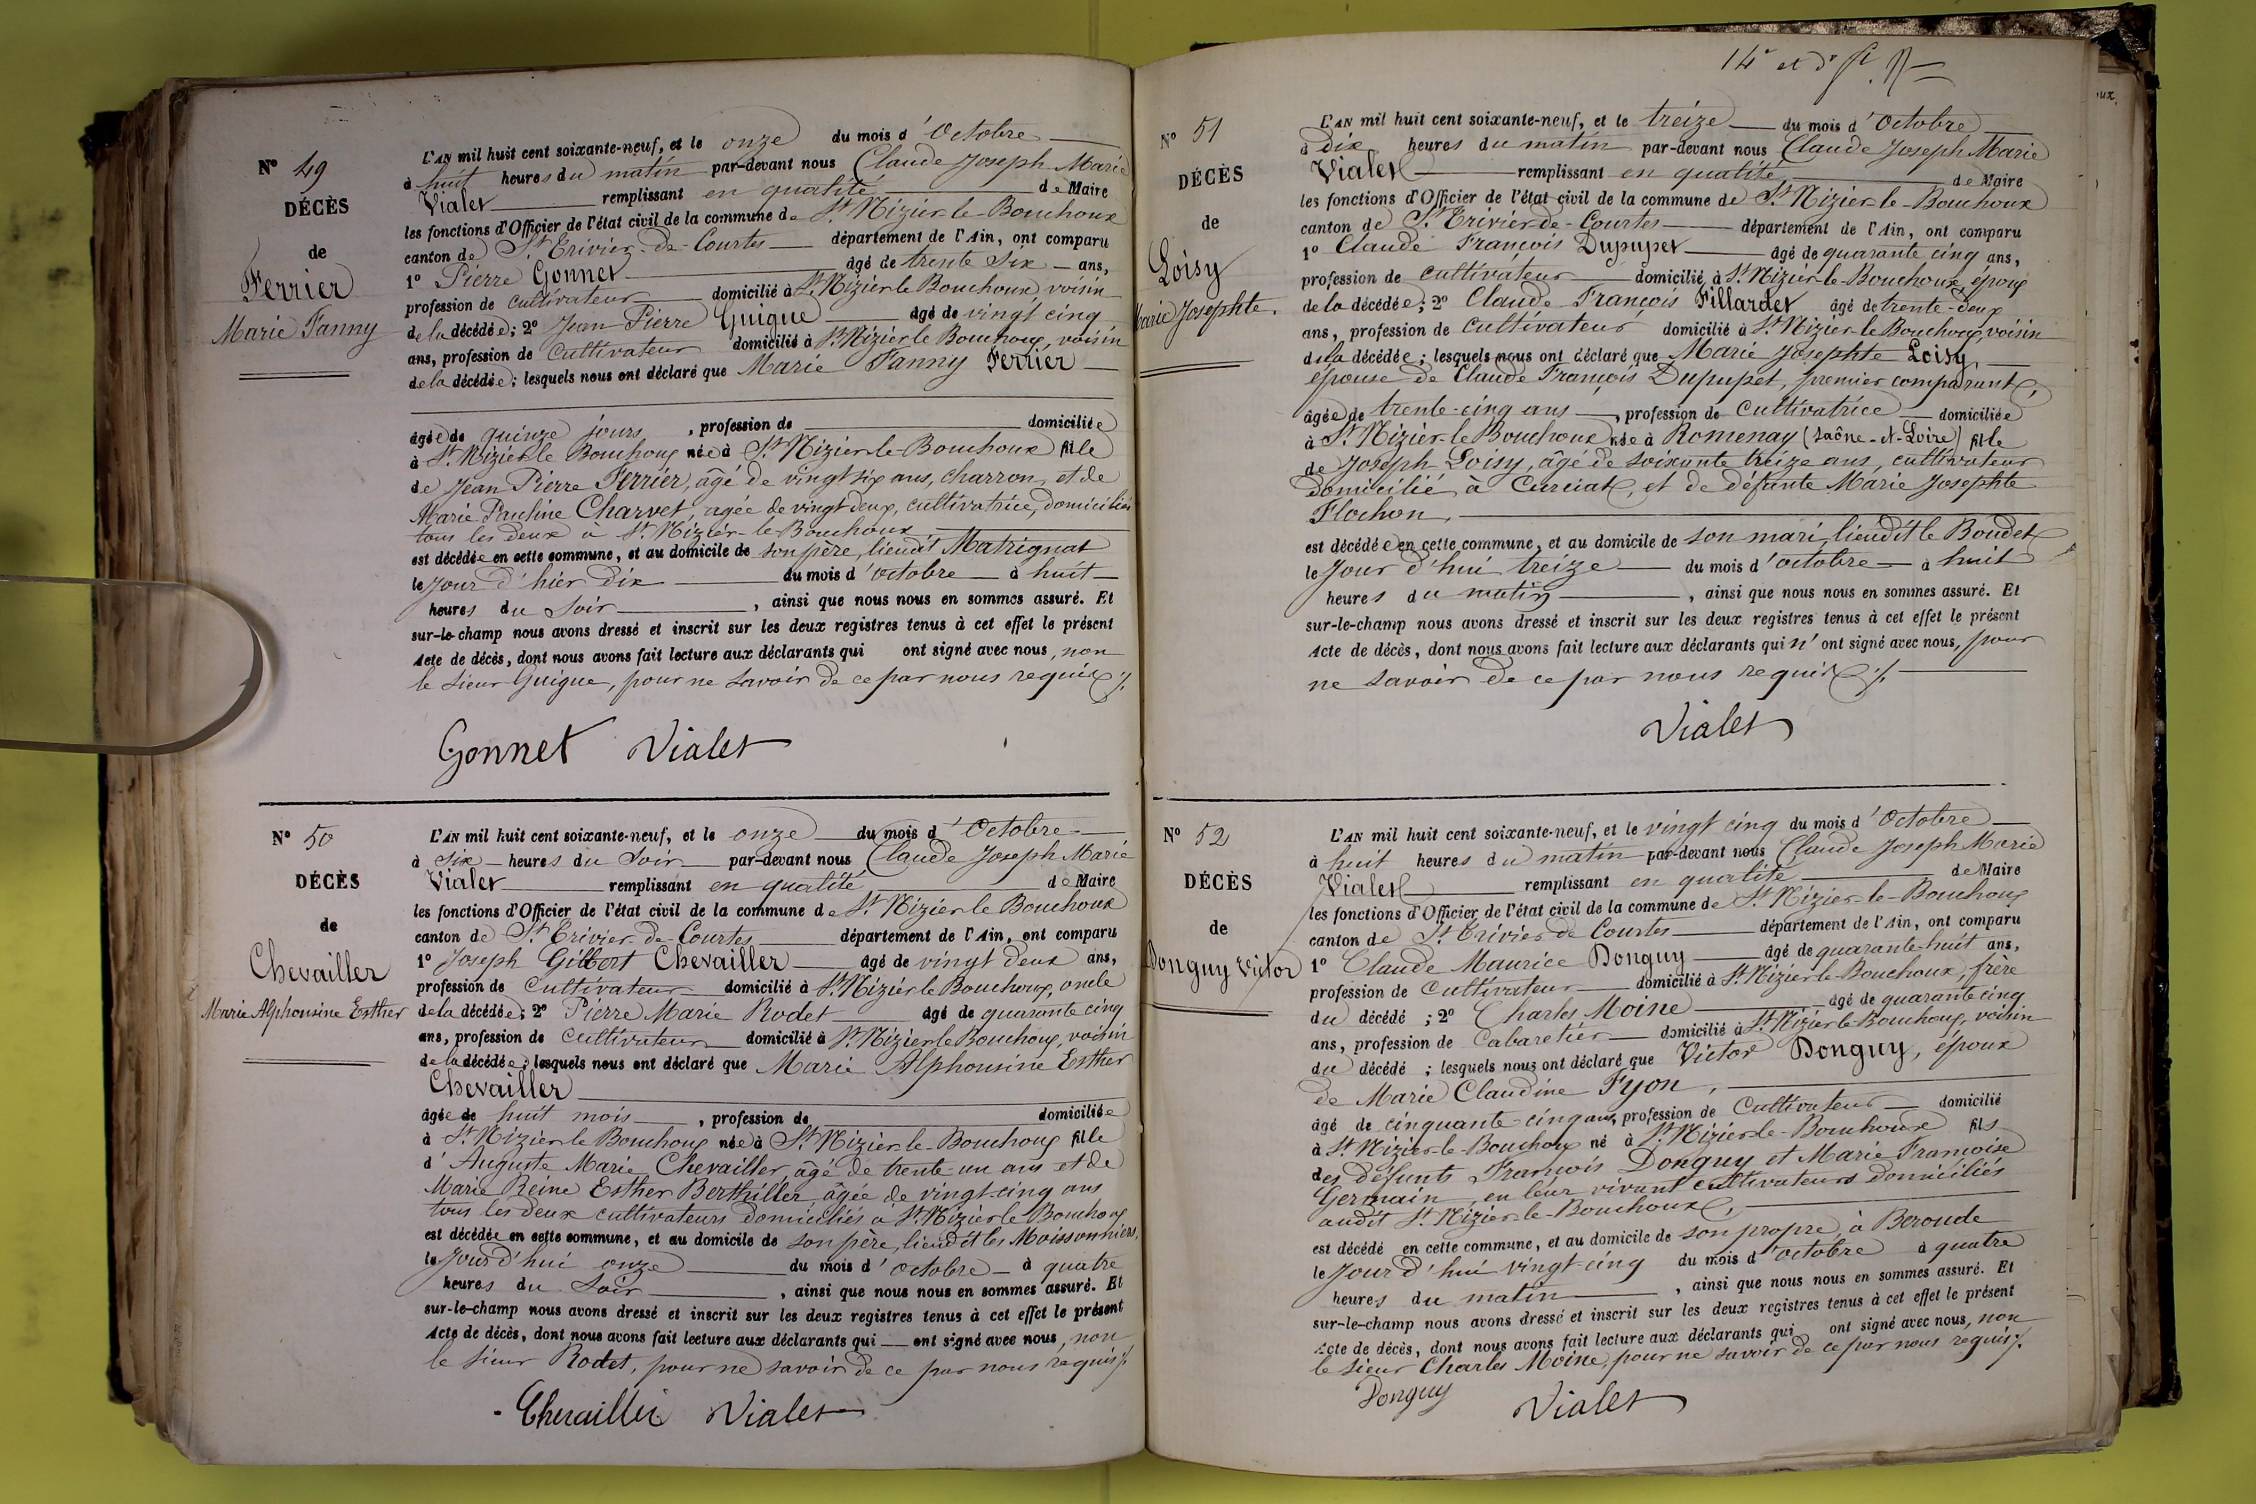 N° 49
DÉCÈS
de
Ferrier
Marie Fanny
L'AN mil huit cent soixante-neuf, et le onze du mois d'Octobre
à huit heures du matin par-devant nous Claude Joseph Marie
Vialet remplissant en qualité de Maire
les fonctions d'Officier de l'état civil de la commune de St Nizier-le-Bouchoux
canton de St Trivier-de-Courtes département de l'Ain, ont comparu
1° Pierre Gonnet âgé de trente six ans,
profession de cultivateur domicilié à St Nizier le Bouchoux, voisin
de la décédée; 2° Jean Pierre Guigue âgé de vingt cinq
ans, profession de Cultivateur domicilié à St Nizier le Bouchoux, voisin
de la décédée; lesquels nous ont déclaré que Marie Fanny Ferrier
âgée de quinze jours, profession de domiciliée
à St Nizier le Bouchoux née à St Nizier-le-Bouchoux fille
de Jean Pierre Ferrier, âgé de vingt six ans, charron, et de
Marie Pauline Charvet, agée de vingt deux, cultivatrice, domiciliés
tous les deux à St Nizier-le-Bouchoux
est décédée en cette commune, et au domicile de son père, lieudit Matrignat
le jour d'hier dix du mois d'octobre à huit
heures du soir, ainsi que nous nous en sommes assuré. Et
sur-le-champ nous avons dressé et inscrit sur les deux registres tenus à cet effet le présent
Acte de décès, dont nous avons fait lecture aux déclarants qui ont signé avec nous, non
le sieur Guigue, pour ne savoir de ce par nous requis ./.
Gonnet Vialet
N° 50
DÉCÈS
de
Chevailler
Marie Alphonsine Esther
L'AN mil huit cent soixante-neuf, et le onze du mois d'Octobre
à six heures du soir par-devant nous Claude Joseph Marie
Vialet remplissant en qualité de Maire
les fonctions d'Officier de l'état civil de la commune de St Nizier le Bouchoux
canton de St Trivier-de-Courtes département de l'Ain, ont comparu
1° Joseph Gilbert Chevailler âgé de vingt deux ans,
profession de Cultivateur domicilié à St Nizier le Bouchoux, oncle
de la décédée; 2° Pierre Marie Rodet âgé de quarante cinq
ans, profession de Cultivateur domicilié à St Nizier le Bouchoux, voisin
de la décédée; lesquels nous ont déclaré que Marie Alphonsine Esther
Chevailler
âgée de huit mois, profession de domiciliée
à St Nizier le Bouchoux née à St Nizier-le-Bouchoux fille
d'Auguste Marie Chevailler, âgé de trente un ans et de
Marie Reine Esther Berthiller, âgée de vingt-cinq ans
tous les deux cultivateurs domiciliés à St Nizier le Bouchoux
est décédée en cette commune, et au domicile de son père, lieudit les Moissonniers,
le jour d'hui onze du mois d'octobre à quatre
heures du soir, ainsi que nous nous en sommes assuré. Et
sur-le-champ nous avons dressé et inscrit sur les deux registres tenus à cet effet le présent
Acte de décès, dont nous avons fait lecture aux déclarants qui ont signé avec nous, non
le sieur Rodet, pour ne savoir de ce par nous requis ./.
Chevailler Vialet
14e et dr
N° 51
DÉCÈS
de
Loisy
Marie Josephte.
L'AN mil huit cent soixante-neuf, et le treize du mois d'Octobre
à dix heures du matin par-devant nous Claude Joseph Marie
Vialet remplissant en qualité de Maire
les fonctions d'Officier de l'état civil de la commune de St Nizier-le-Bouchoux
canton de St Trivier-de-Courtes département de l'Ain, ont comparu
1° Claude François Dupupet âgé de quarante cinq ans,
profession de cultivateur domicilié à St Nizier-le-Bouchoux, époux
de la décédée; 2° Claude François Fillardet âgé de trente-deux
ans, profession de cultivateur domicilié à St Nizier-le-Bouchoux, voisin
de la décédée; lesquels nous ont déclaré que Marie Josephte Loisy,
épouse de Claude François Dupupet, premier comparant,
âgée de trente-cinq ans, profession de cultivatrice domiciliée
à St Nizier-le-Bouchoux née à Romenay (Saône-et-Loire) fille
de Joseph Loisy, âgé de soixante treize ans, cultivateur
domicilié à Curciat, et de défunte Marie Josephte
Flochon,
est décédée en cette commune, et au domicile de son mari, lieudit le Boudet
le jour d'hui treize du mois d'octobre à huit
heures du matin, ainsi que nous nous en sommes assuré. Et
sur-le-champ nous avons dressé et inscrit sur les deux registres tenus à cet effet le présent
Acte de décès, dont nous avons fait lecture aux déclarants qui n'ont signé avec nous, pour
ne savoir de ce par nous requis ./.
Vialet
N° 52
DÉCÈS
de
Donguy Victor
L'AN mil huit cent soixante-neuf, et le vingt cinq du mois d'Octobre
à huit heures du matin par-devant nous Claude Joseph Marie
Vialet remplissant en qualité de Maire
les fonctions d'Officier de l'état civil de la commune de St Nizier-le-Bouchoux
canton de St Trivier de Courtes département de l'Ain, ont comparu
1° Claude Maurice Donguy âgé de quarante-huit ans,
profession de Cultivateur domicilié à St Nizier-le-Bouchoux, frère
du décédé; 2° Charles Moine âgé de quarante cinq
ans, profession de Cabaretier domicilié à St Nizier le Bouchoux, voisin
du décédé; lesquels nous ont déclaré que Victor Donguy, époux
de Marie Claudine Fyon,
âgé de cinquante-cinq ans, profession de Cultivateur domicilié
à St Nizier-le-Bouchoux né à St Nizier-le-Bouchoux fils
des défunts François Donguy et Marie Françoise
Germain, en leur vivant cultivateurs domiciliés
audit St Nizier-le-Bouchoux,
est décédé en cette commune, et au domicile de son propre, à Beroude
le jour d'hui vingt-cinq du mois d'octobre à quatre
heures du matin, ainsi que nous nous en sommes assuré. Et
sur-le-champ nous avons dressé et inscrit sur les deux registres tenus à cet effet le présent
Acte de décès, dont nous avons fait lecture aux déclarants qui ont signé avec nous, non
le sieur Charles Moine, pour ne savoir de ce par nous requis ./.
Donguy Vialet